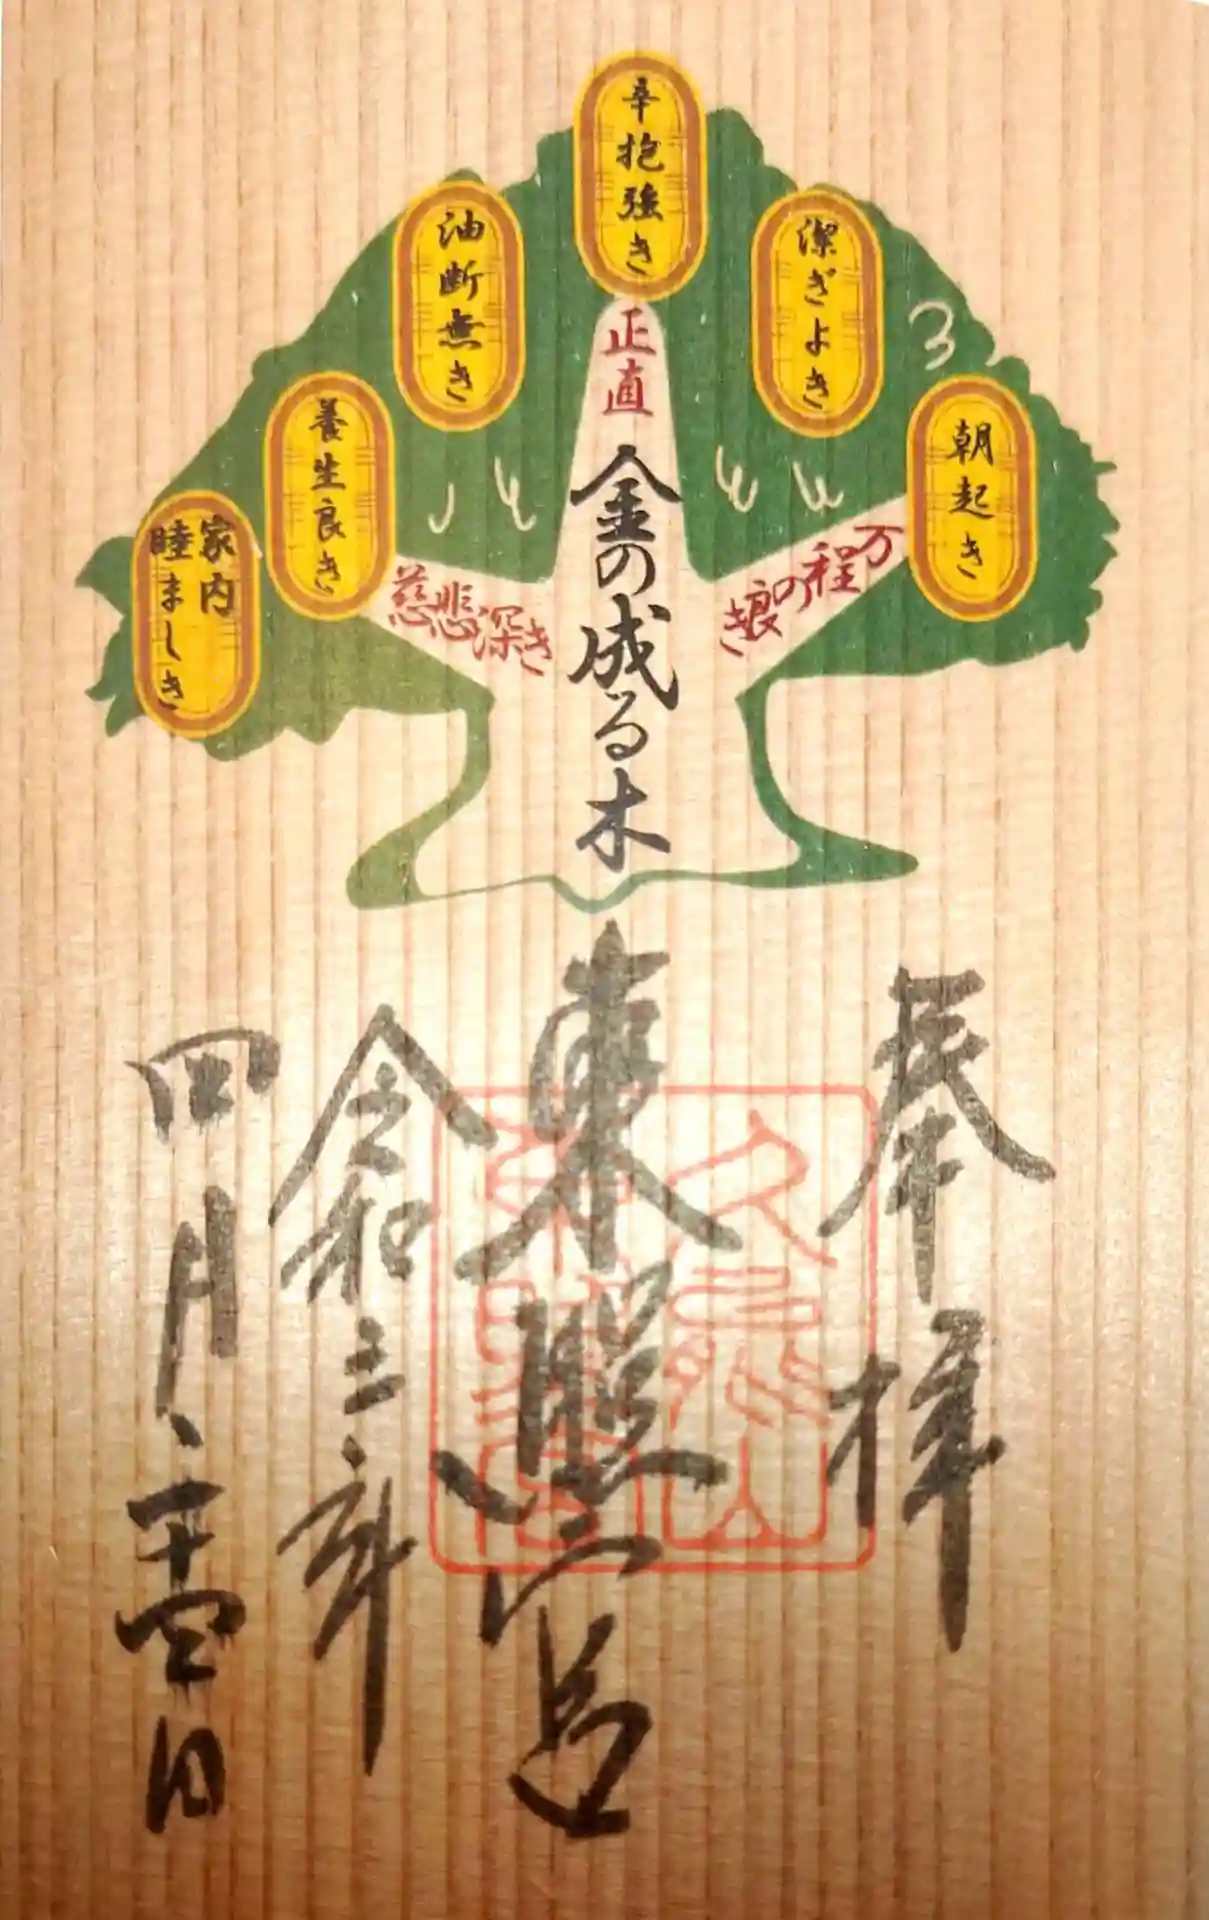 朝起き
潔ぎよき
辛抱強き
油断無き
養生良き
家内
睦ましき
万程の
き
正直
慈悲深き
金の成る木
奉拝
東照宮
久能山
東照宮
令和三年
四月二十四日